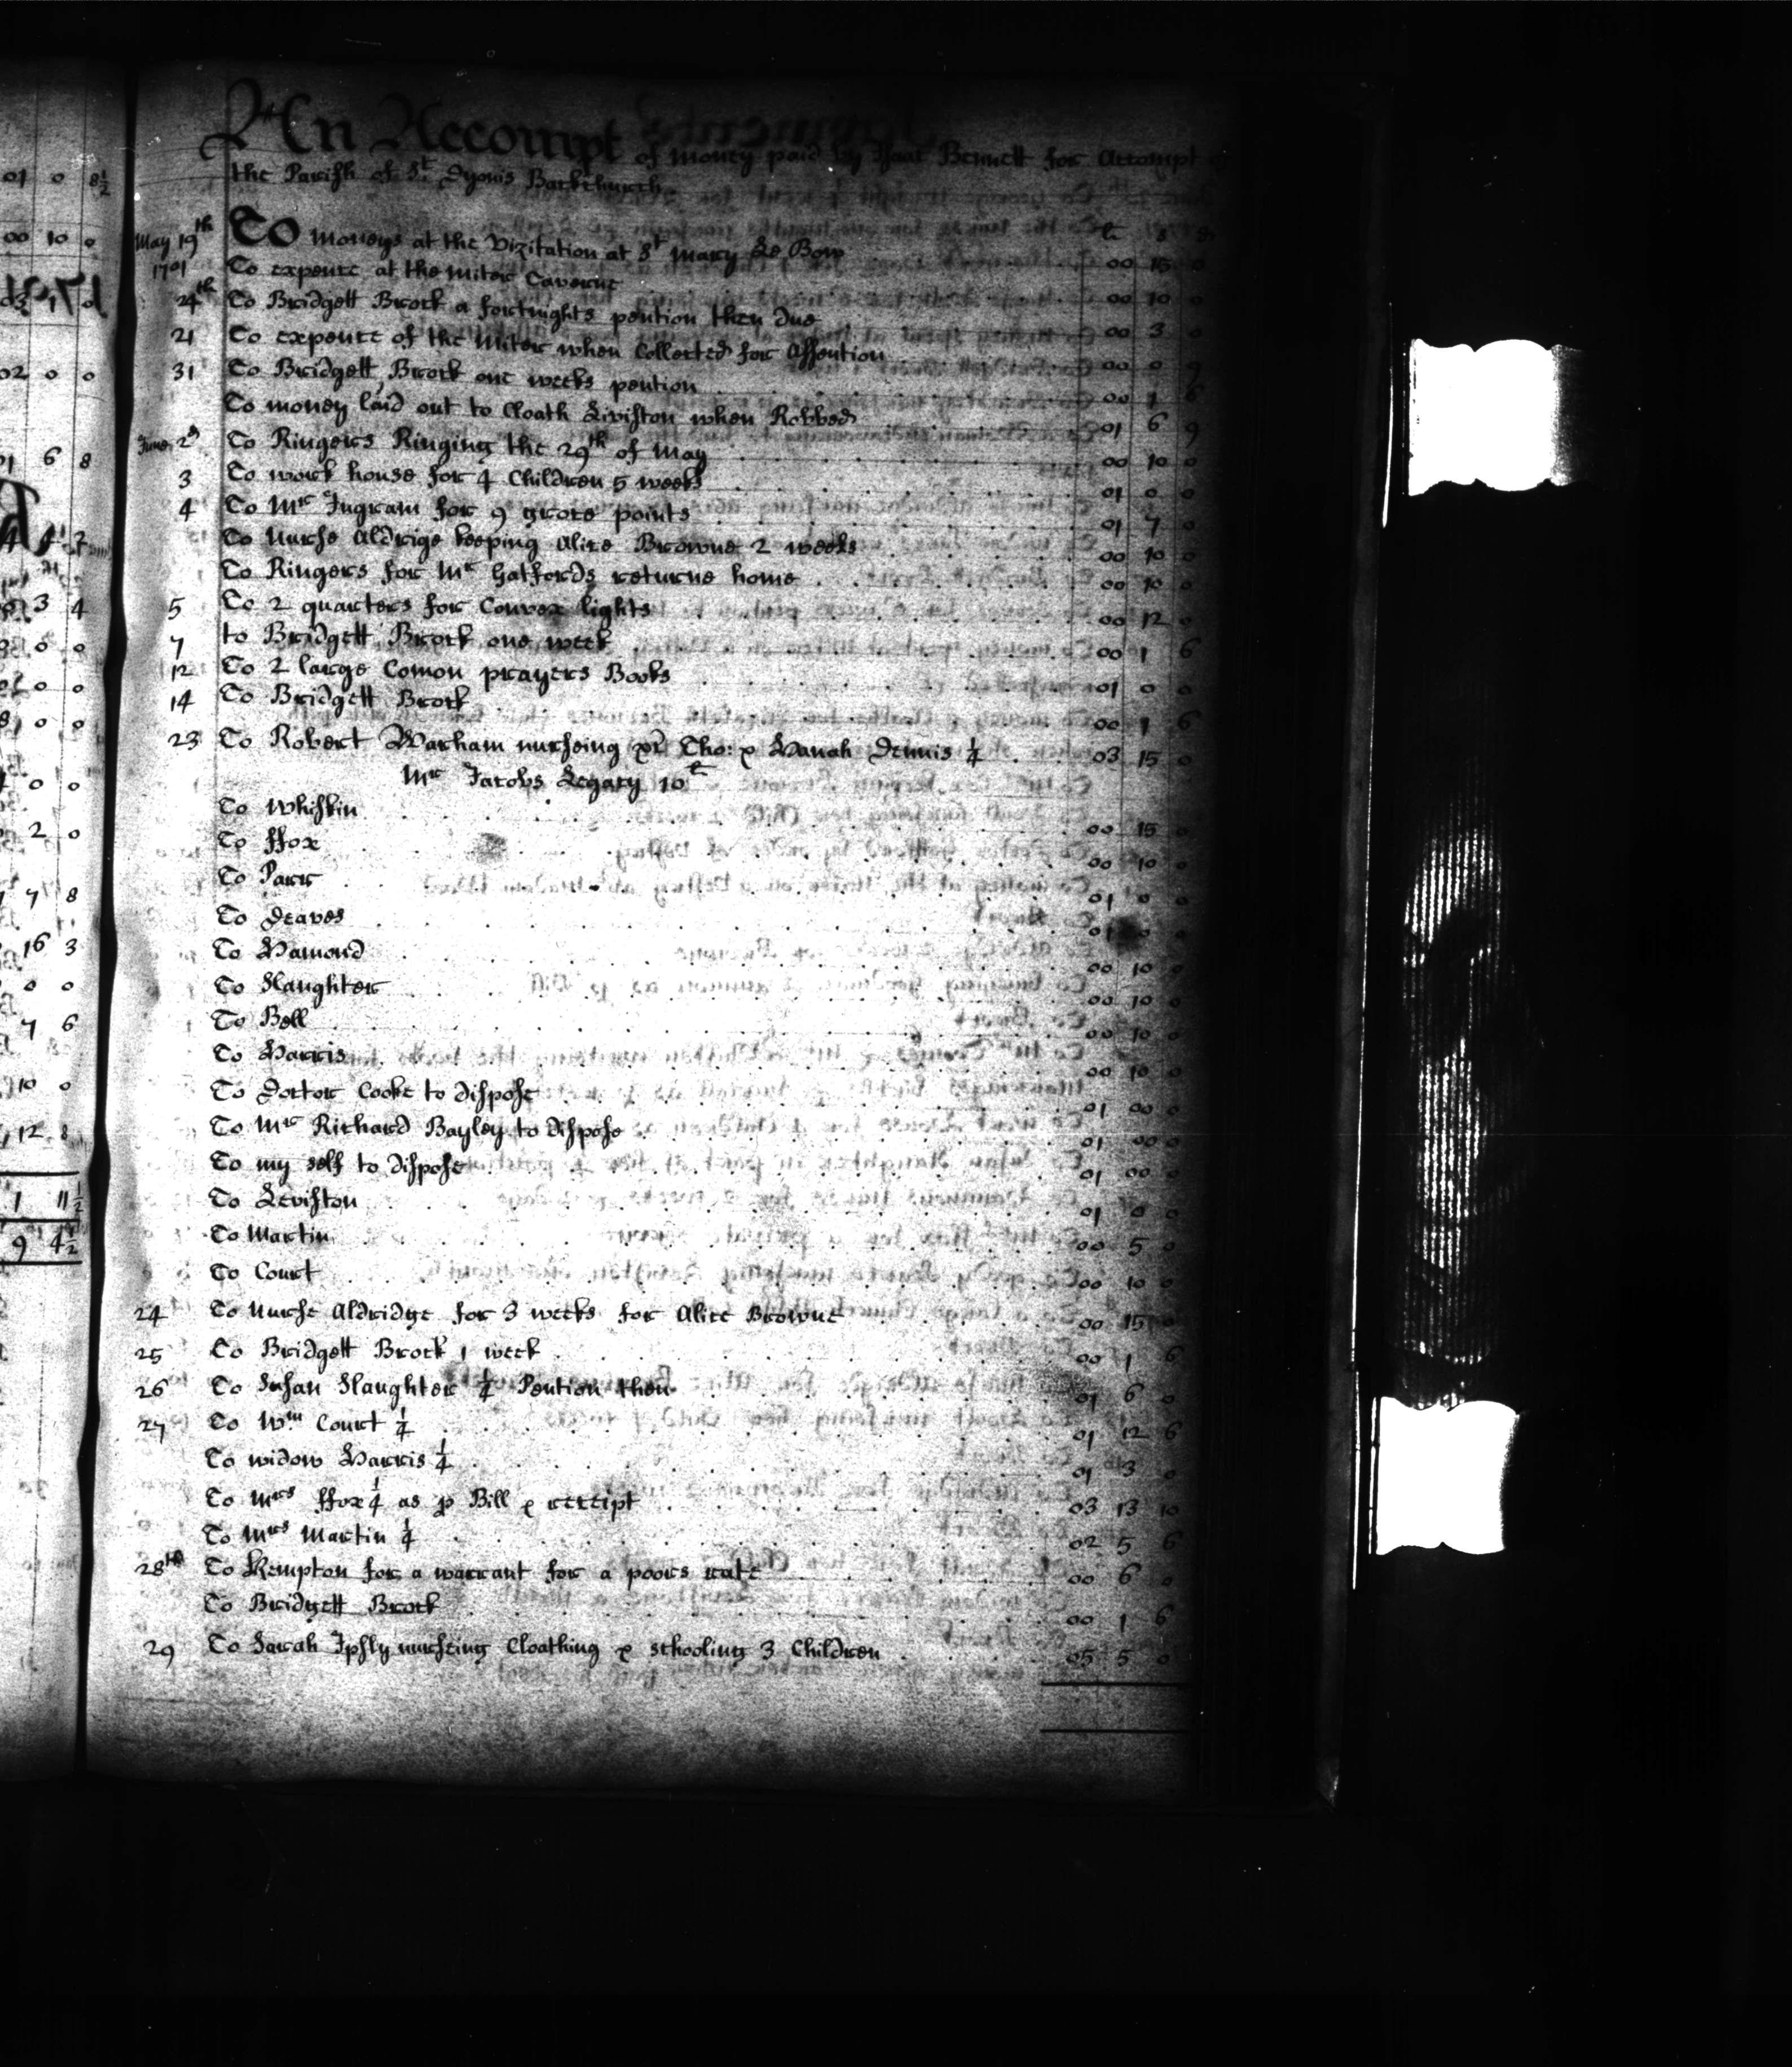 An Accompt of money paid by Isaac Bennett for Accompt
the Parish of St Dyonis Backchurch
li s d
May 19th 1701 To moneys at the Vizitation at St Mary Le Bow 00 15 0
To expence at the Miter Taverne 00 10 0
24th To Bridgett Brock a fortnights pention then due 00 3 0
21 To expence of the Miter when Collected for Assention 00 0 9
31 To Bridgett Brock one weeks pention 00 1 6
To money laid out to Cloath Leviston when Robbed 01 6 9
June 2d To Ringers Ringing the 29th of May 00 10 0
3 To work house for 4 Children 5 weeks 01 0 0
4 To Mr Ingram for 9 groce points 01 7 0
To Nurse Aldrige keeping Alice Browne 2 weeks 00 10 0
To Ringers for Mr Gatfords returne home 00 10 0
5 To 2 quarters for Convex lights 00 12 0
7 to Bridgett Brock one week 00 1 6
12 To 2 large Comon prayers Books 01 0 0
14 To Bridgett Brock 00 1 6
23 To Robert Warham nurseing Tho: & Hanah Dennis ¼ 03 15 0
Mr Jacobs Legacy 10
To Whiskin 00 15 0
To ffox 00 10 0
To Parr 01 0 0
To Deaves 01 0 0
To Hamond 00 10 0
To Slaughter 00 10 0
To Bell 00 10 0
To Harris 00 10 0
To Doctor Cooke to dispose 01 00 0
To Mr Richard Bayley to dispose 01 00 0
To my self to dispose 01 00 0
To Leviston 01 0 0
To Martin 00 5 0
To Court 00 10 0
24 To Nurse Aldridge for 3 weeks for Alice Browne 00 15 0
25 To Bridgett Brock 1 week 00 1 6
26 To Susan Slaughter ¼ Pention then 01 6 0
27 To Wm Court ¼ 01 12 6
To widow Harris ¼ 01 3 0
To Mrs ffox ¼ as p Bill & receipt 03 13 10
To Mrs Martin ¼ 02 5 6
28th To Kempton for a warrant for a poors rate 00 6 0
To Bridgett Brock 00 1 6
29 To Sarah Ipsly nurseing Cloathing & schooling 3 Children 05 5 0